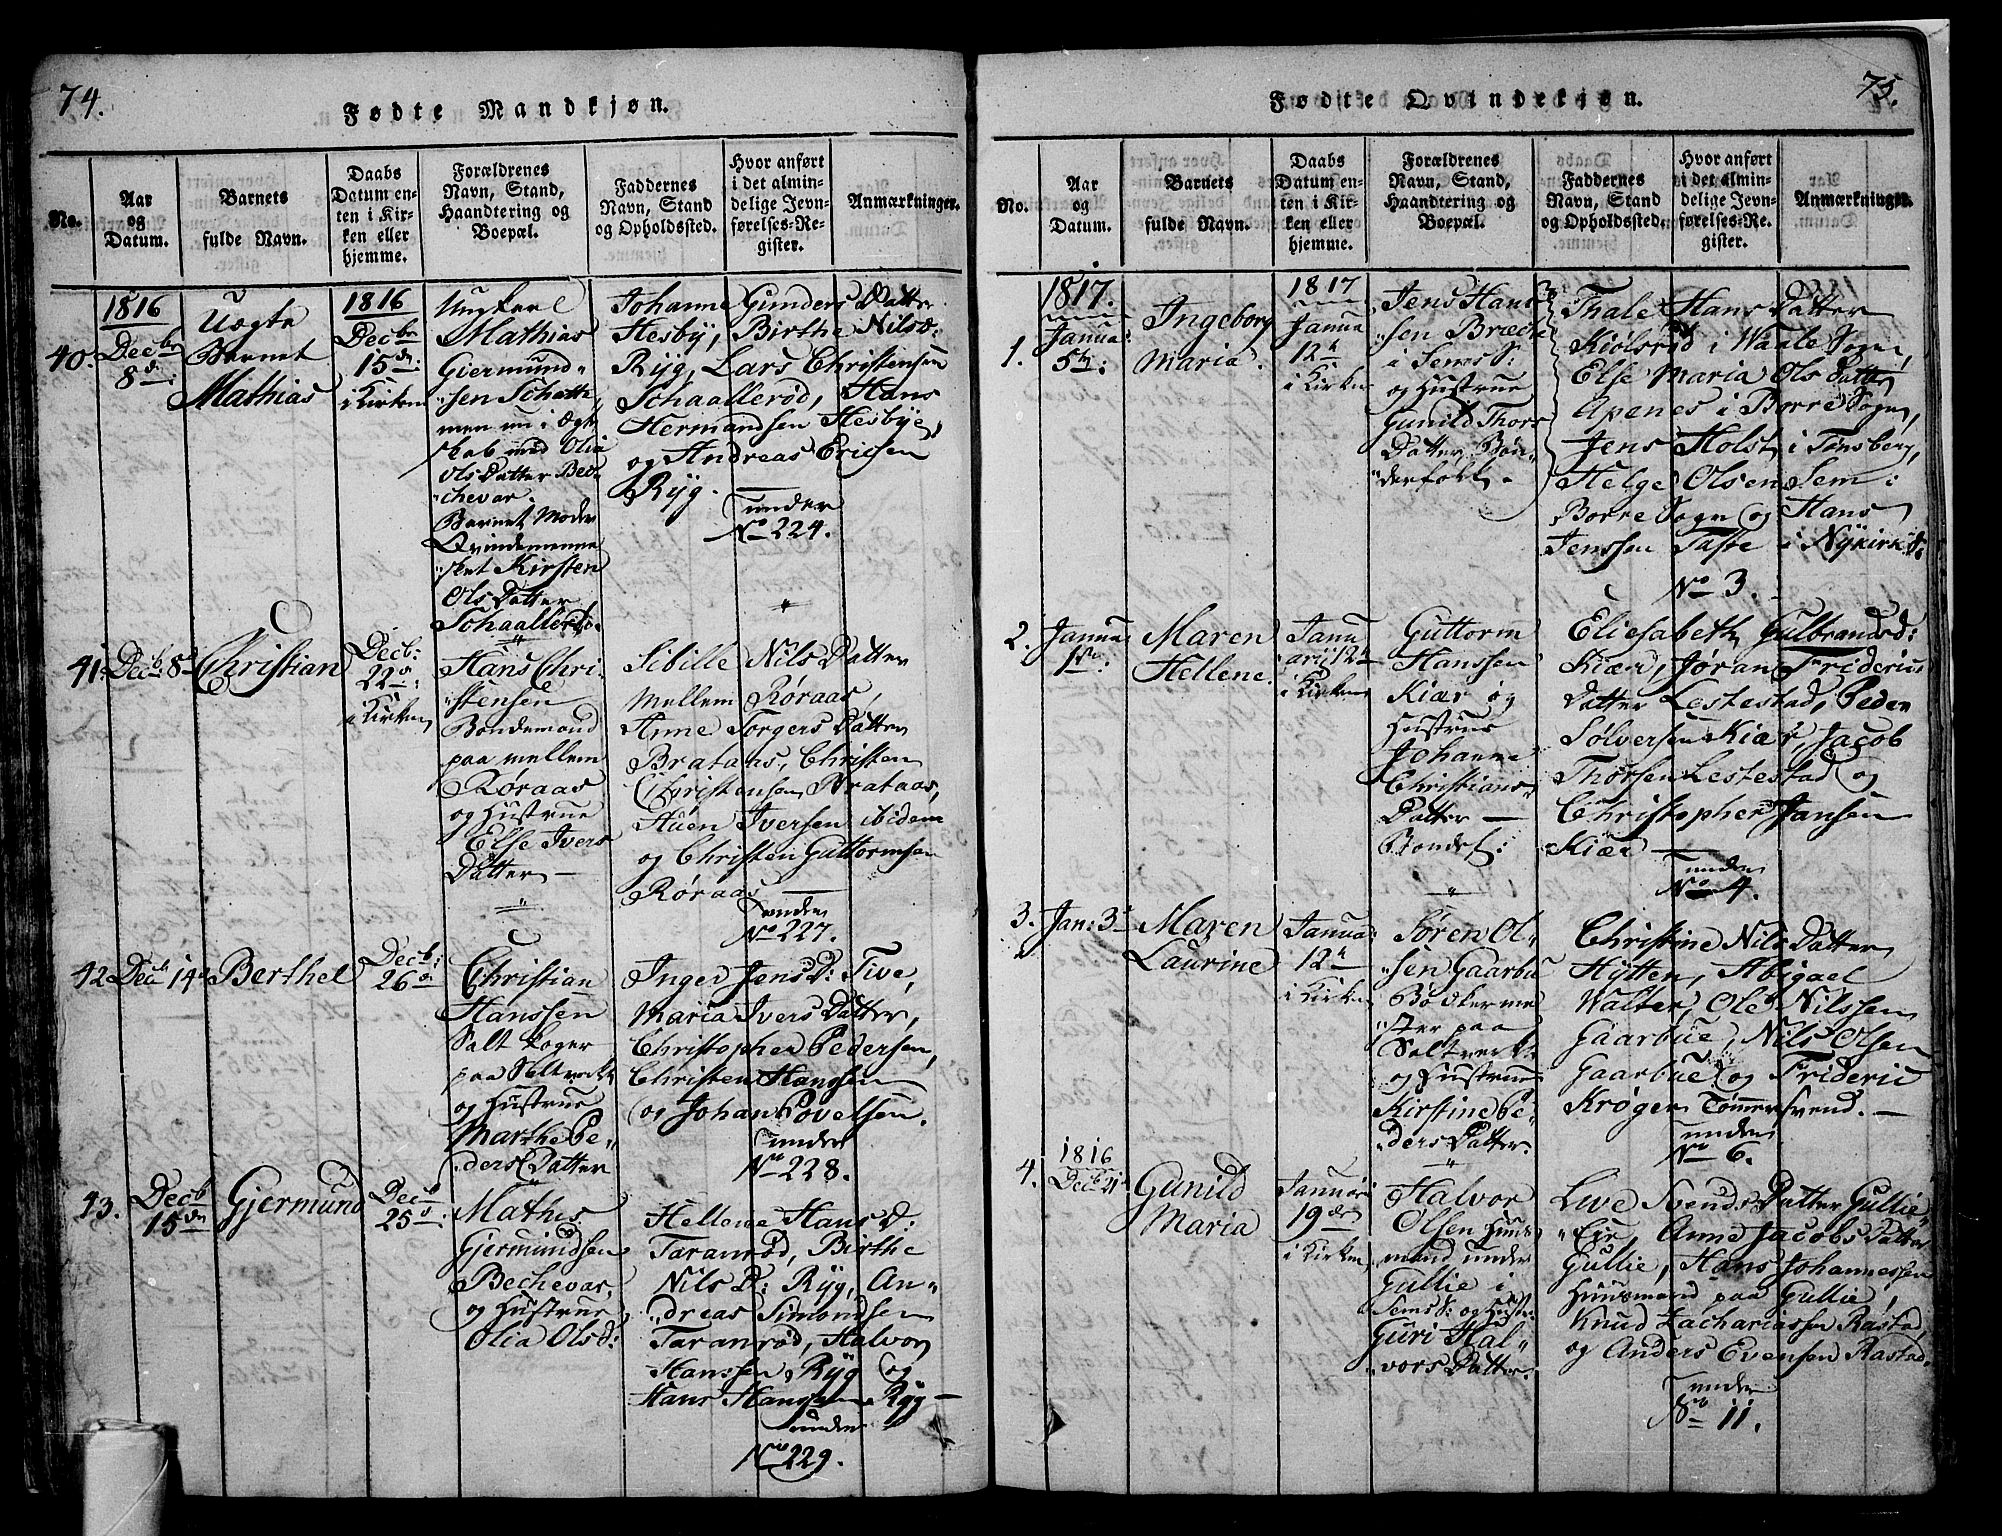 74.
Fødte Mandkjøn.
No.
Aar
og
Datum.
Barnets
fulde Navn.
Daabs
Datum en-
ten i Kir-
ken eller
hjemme.
Forældrenes
Navn, Stand,
Haandtering og
Boepæl.
Faddernes
Navn, Stand
og Opholdssted.
Hvor anført
i det almin-
delige Jevn-
førelses-Re-
gister.
Anmærkninger.
40.
1816
Decbr
8de:
Uægte
Barnet
Mathias
1816
Decbr
15de:
i Kirken
Ungkarl
Mathias
Giermund-
sen Schatte,
men nu i Ægte
skab med Olia
Ols Datter Be-
chevar.
Barnets Moder
Qvindemenne-
sket Kirsten
Ols Datter
Schaallerød.
Johanne Gunders Datter
Hesby, Birthe Nilsd:
Ryg, Lars Christensen
Schaallerød, Hans
Hermandsen Hesbye,
og Andreas Ericsen
Ryg. —
under
No 224.
41.
Decb: 8de
Christian
Decb:
22de:
i Kirken
Hans Chri-
stensen
Bondemand
paa mellem
Røraas
og Hustrue
Else Ivers
Datter —
Sibille Nils Datter
Mellem Røraas,
Anne Torgers Datter
Brataas, Christen
Christensen Brataas,
Iversen ibidem
og Christen Guttormsen
Røraas —
under
No 227.
42
Decb 14de
Berthel
Decb:
26de
Christian
Hanssen
Salt koger
paa Saltverket
og Hustrue
Marthe Pe-
ders Datter
Inger Jens D: Tive,
Maria Ivers Datter,
Christopher Pedersen,
Christen Hanssen
og Johan Povelsen.
under
No 228.
43.
Decb
15de
Gjermund
Decb
25de:
Mathis
Gjermundsen
Bechevar,
og Hustrue
Olia Olsd:
Hellene Hans D:
Taranrød, Birthe
Nils D: Ryg, An-
dreas Simondsen
Taranrød, Halvor
Hanssen Ryg og
Hans Hanssen Ryg —
under
No 229.
75.
Fødte Qvindekjøn.
No.
Aar
og
Datum.
Barnets
fulde Navn.
Daabs
Datum en-
ten i Kir-
ken eller
hjemme.
Forældrenes
Navn, Stand,
Haandtering og
Boepæl.
Faddernes
Navn, Stand
og Opholdssted.
Hvor anført
i det almin-
delige Jevn-
førelses-Re-
gister.
Anmærkninger.
1.
1817.
Janua:
5te:
Ingeborg
Maria.
1817
Janua
12te
i Kirken
Jens Hans-
sen Bræde
i Sems S:
og Hustrue
Gunild Thors
Datter Bøn-
derfolk.
Thale Hans Datter
Kiølsrød i Waale Sogn,
Else Maria Ols Datter
Apenes i Borre Sogn,
Jens Holst i Tønsberg,
Helge Olsen Sem:
Borre Sogn og Hans
Jenssen Taste i Nykirke S:
No 3.
2.
Janua
1ste.
Maren
Hellene.
Janu
arii 12te
i Kirken
Guttorm
Hanssen
Kiær og
Hustrue
Johanne
Christians-
Datter —
Bondef:
Eliesabeth Gulbrandsd:
Kiær, Jøran Friderics
Datter Lestestad, Peder
Sølversen Kiær, Jacob
Thorsen Lestestad og
Christopher Jansen
Kiær —
under
No 4.
3.
Jan: 3de
Maren
Laurine
Janua
12te
i Kirken
Søren Ol-
sen Gaarbu
Bødkerme-
ster paa
Saltverket
og Hustrue
Kirstine Pe-
ders Datter
Christine Nils Datter
Hytten, Abigael
Walter, Ole Nilssen
Gaarbue, Nils Olsen
Gaarbue og Frideric
Krøger Tømmersvend. —
under
No 6.
4.
1816
Decb: 21de
Gunild
Maria
Januar
19de
i Kirken
Halvor
Olsen Huus-
mand under
Gullie i
Sems S: og Hustr:
Guri Hal-
vors Datter.
Live Svends Datter Gullie-
Eie, Anne Jacobs Datter
Gullie, Hans Johannessen
Huusmand paa Gullie,
Knud Zachariassen Rastad,
og Anders Evensen Rastad.
under
No 11.